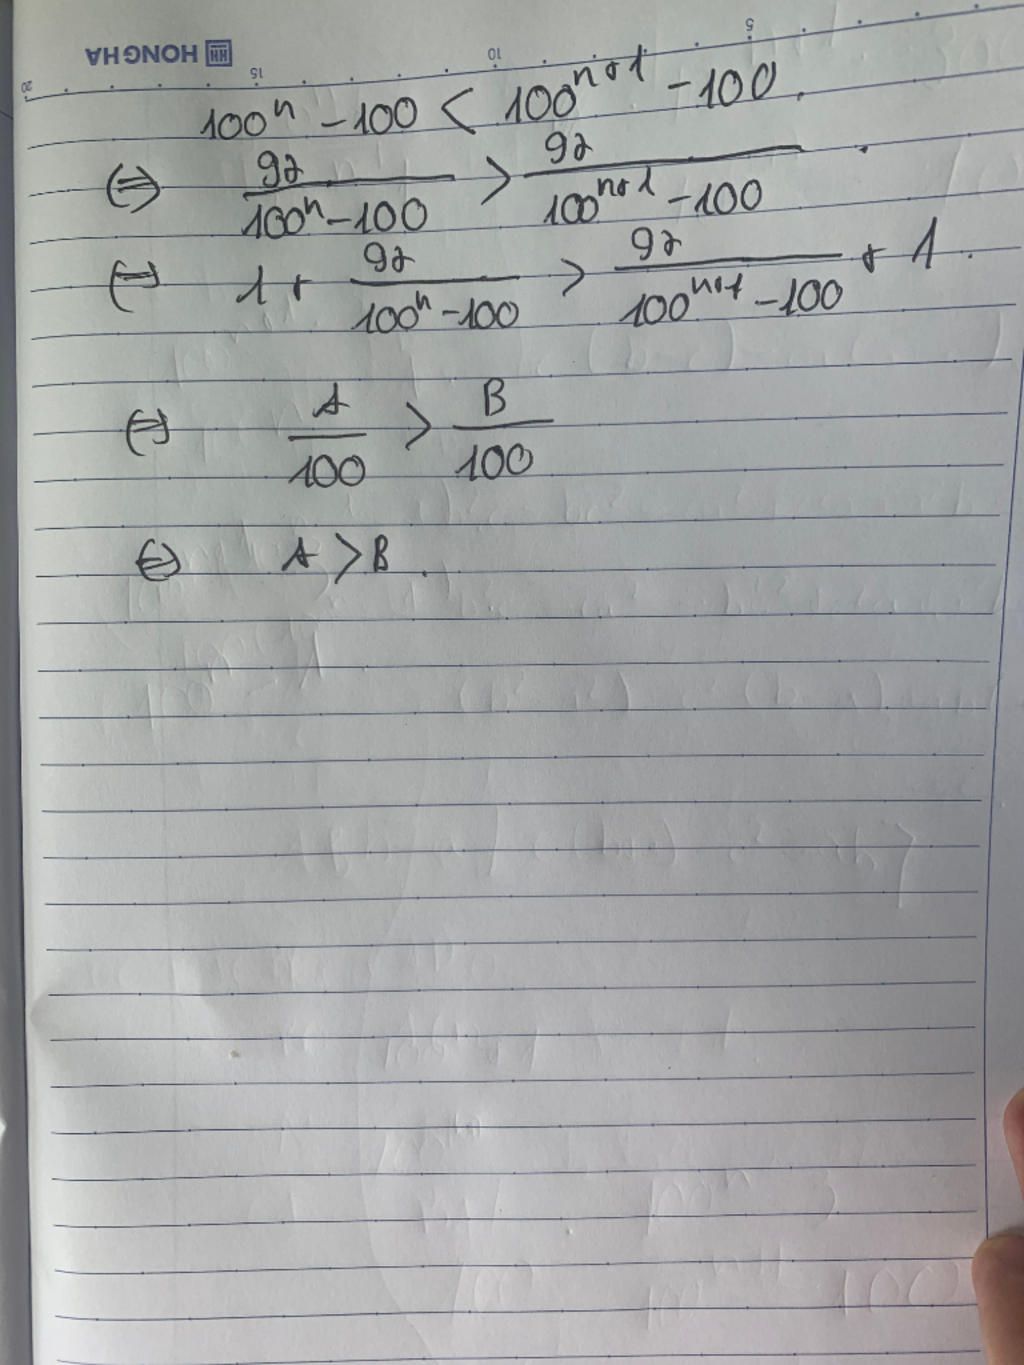 HONG HA
20 15 10 5
100^n - 100 < 100^{n+1} - 100.
⇔ 92/(100^n - 100) > 92/(100^{n+1} - 100).
⇔ 1 + 92/(100^n - 100) > 92/(100^{n+1} - 100) + 1.
⇔ A/100 > B/100
⇔ A > B.